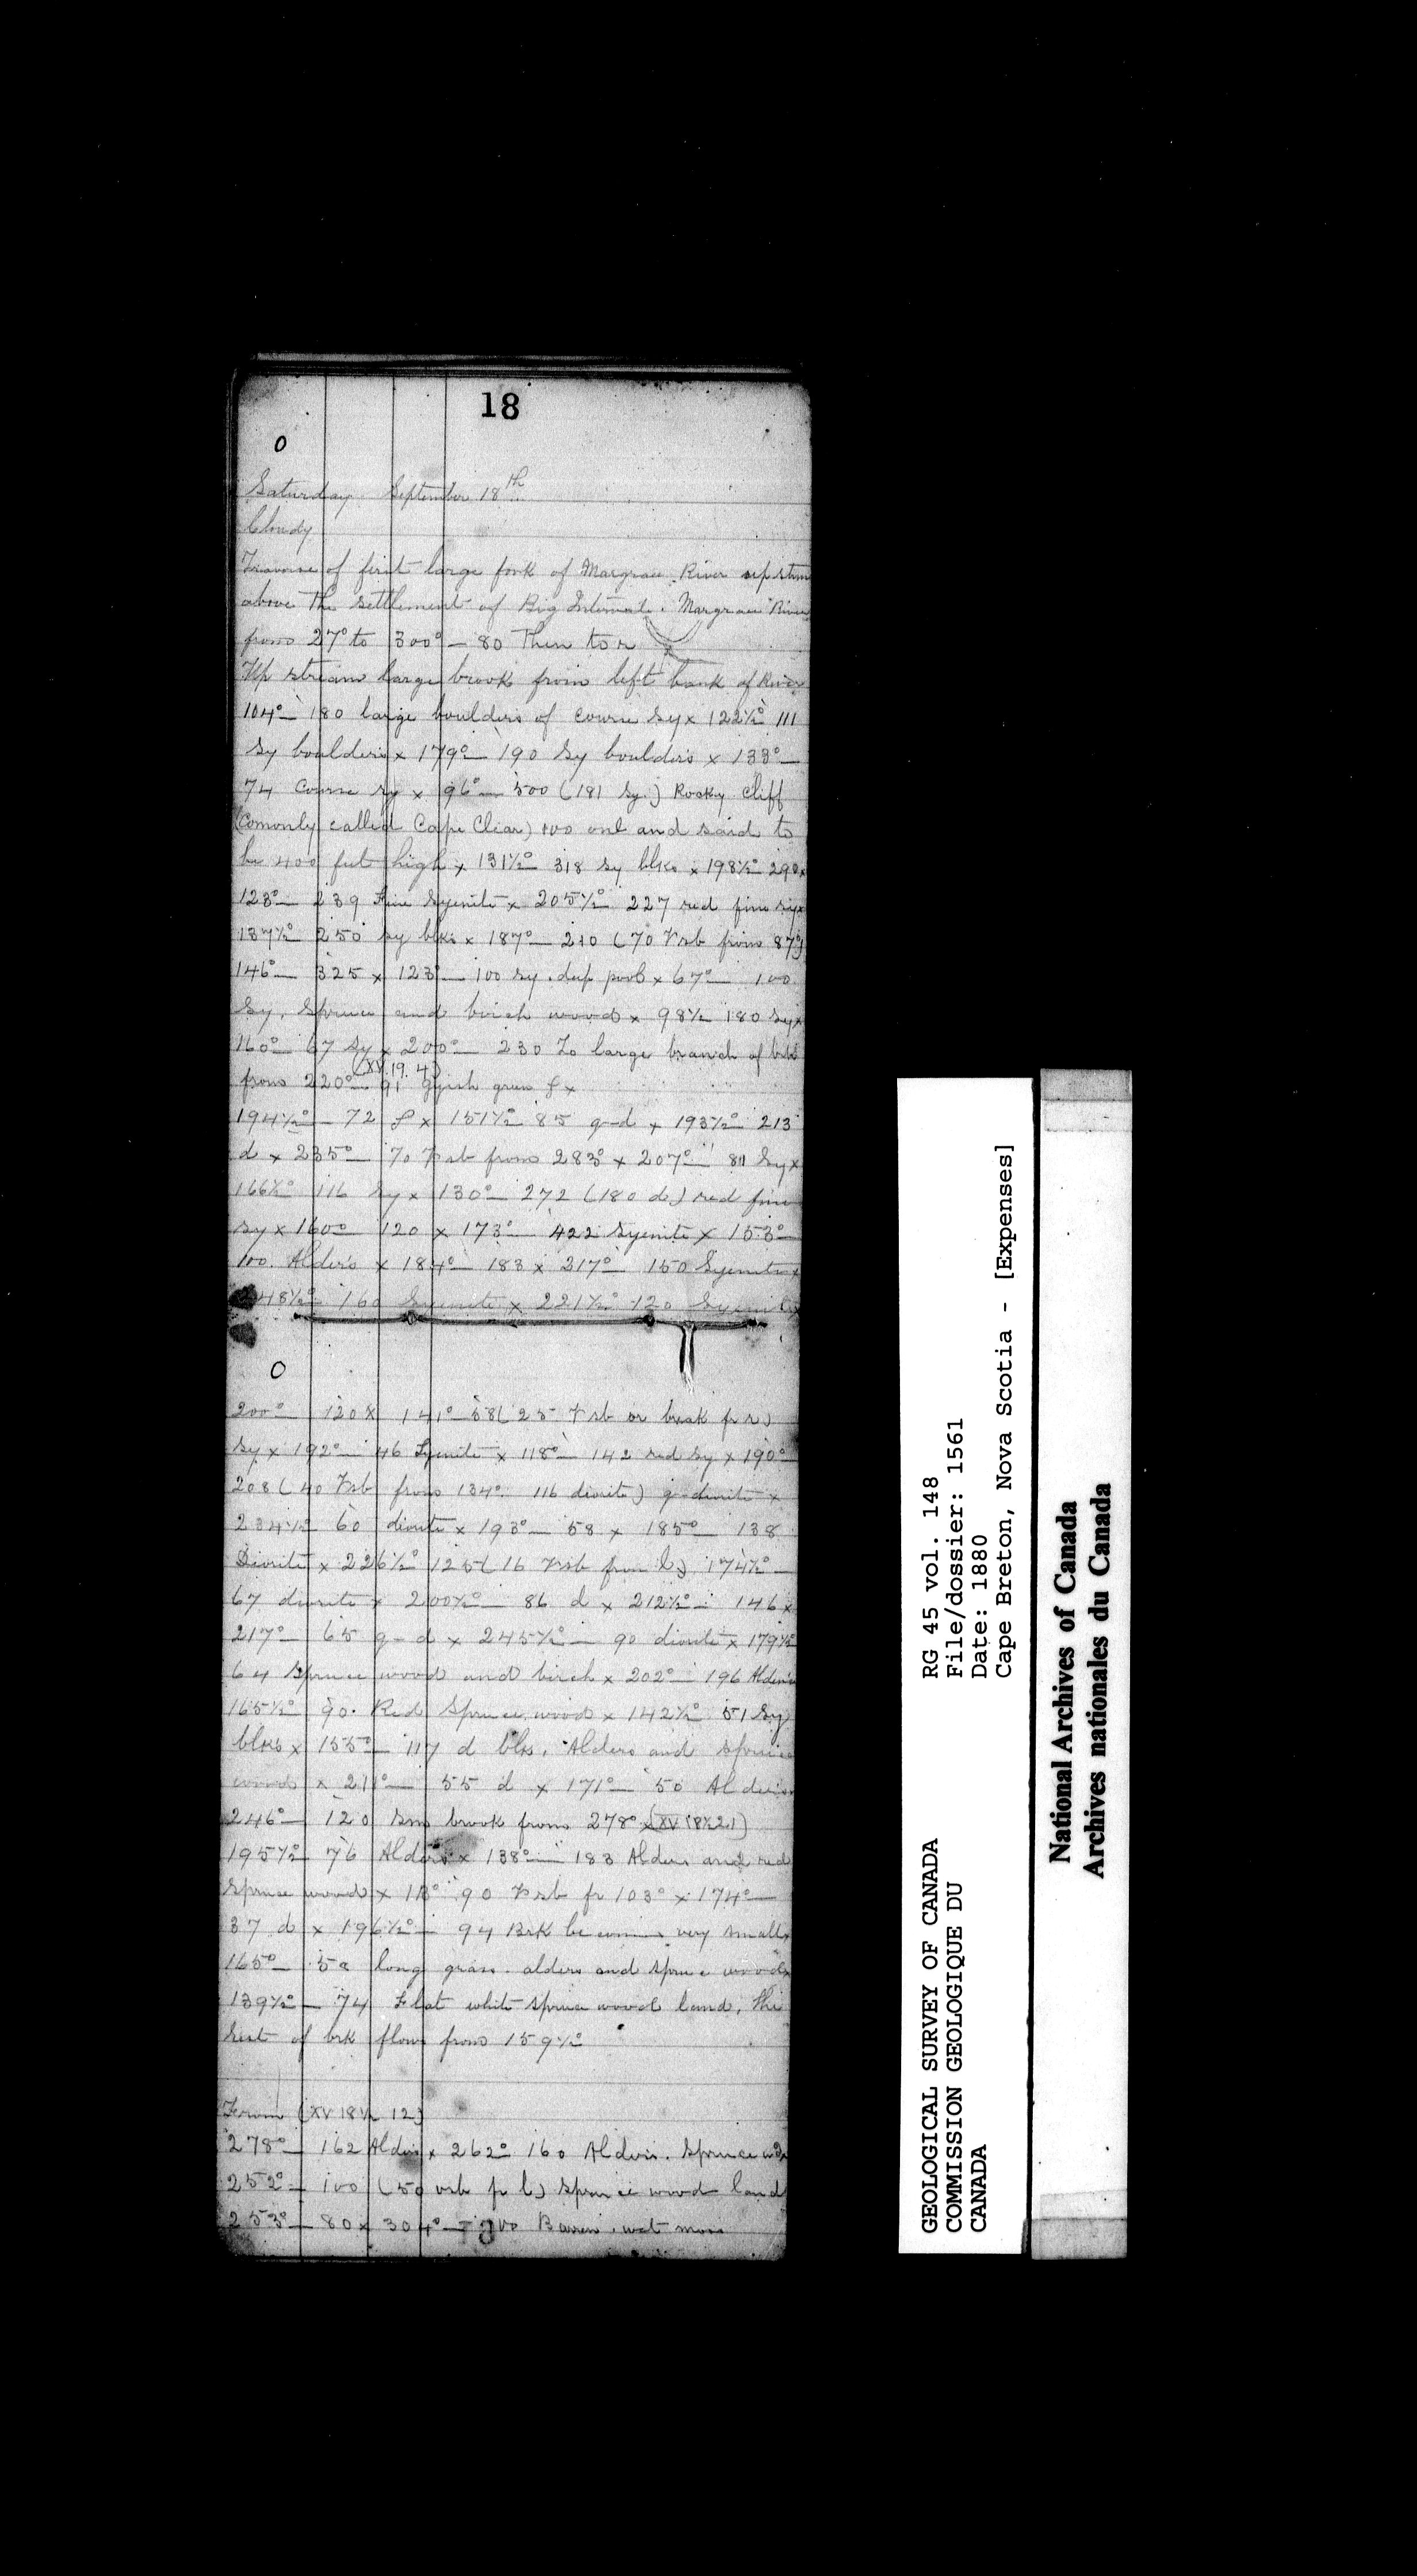 18
0
Saturday September 18th
Cloudy
Traverse of first large fork of Margaree River upstream
above the settlement of Big Intervale. Margaree River
from 27° to 300° — 80 Then to r
Up stream large brook from left bank of River
104° — 180 large boulders of course sy x 122½° 111
sy boulders x 179° — 190 sy boulders x 133° —
74 Course sy x 96° — 500 (181 sy.) Rocky cliff
(Comonly called Cape Cliar) 100 and said to
be 400 feet high x 131½° 318 sy blks x 198½° 290 x
123° — 239 Fine Syenite x 205½° 227 red fine sy x
137½° 250 sy blks x 187° — 210 (70 Vsb from 87°)
146° — 325 x 123° — 100 sy. deep pool x 67° — 100
Sy. Spruce and birch wood x 98½ 180 sy x
160° — 67 sy x 200° — 230 To large branch of brk
(XV. 19. 4)
from 220° — 91 gyish green f x
194½° — 72 f x 151½° 85 g-d x 193½° 213
d x 235° — 70 Vsb from 283° x 207° — 811 Sy x
166½° 116 Sy x 130° — 272 (180 d) red fine
sy x 160° 120 x 173° — 422 Syenite x 153° —
100. Alders x 184° — 183 x 217° 150 Syenite x
248½° 160 Syenite x 221½° 120 Syenite x
0
200° — 120 x 141° 58 (25 Vsb or break fr r)
sy x 192° — 46 Syenite x 118° — 142 red sy x 190° —
208 (40 Vsb from 134° 116 diorite) g-diorite x
234½° 60 diorite x 193° — 58 x 185° — 138
Diorite x 226½° 125 (16 Vsb from l.) 174½° —
67 diorite x 200½° — 86 d x 212½° — 146 x
217° — 65 g-d x 245½° — 90 diorite x 179½°
64 Spruce wood and birch x 202° — 196 Alders
165½° 90. Red Spruce wood x 142½° 51 Sy
blks x 155° — 117 d blks. Alders and spruce
wood x 211° — 55 d x 171° — 50 Alders
246° — 120 Sm brook from 278° x (XV 18½ 21)
195½° 76 Alders x 138° — 183 Alders and red
Spruce wood x 113° 90 Vsb fr 103° x 174° —
37 d x 196½° — 94 Brk becomes very small x
165° — 5 long grass. alders and spruce wood x
139½° — 74 Flat white spruce wood land. The
rest of brk flows from 159½
From (XV 18½ 12)
278° — 162 Alders x 262° 160 Alders. Spruce wds
252° — 100 (50 vsb fr l.) spruce wood land
253° — 80 x 304° — 300 Barren. wet moss
GEOLOGICAL SURVEY OF CANADA
COMMISSION GEOLOGIQUE DU
CANADA
RG 45 vol. 148
File/dossier: 1561
Date: 1880
Cape Breton, Nova Scotia - [Expenses]
National Archives of Canada
Archives nationales du Canada